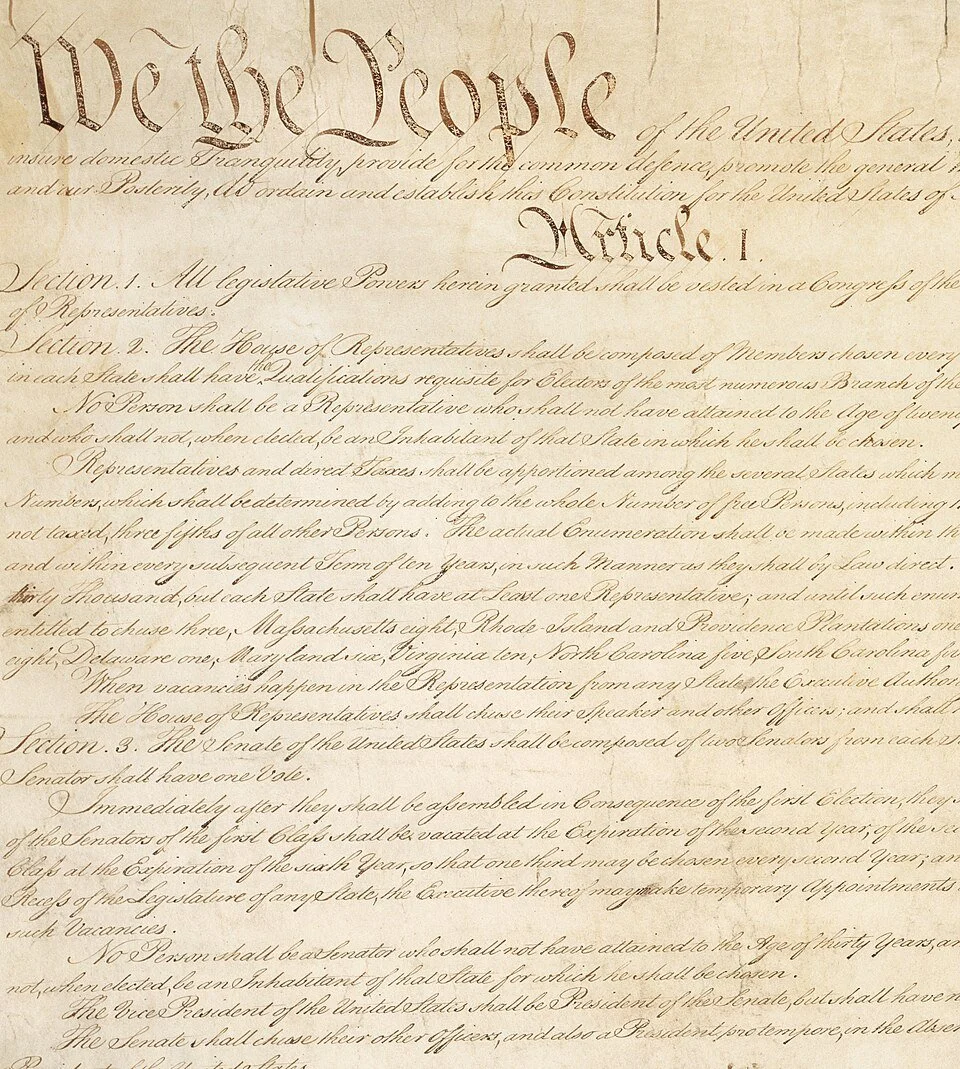 We the People of the United States,
insure domestic Tranquility, provide for the common defence, promote the general
and our Posterity, do ordain and establish this Constitution for the United States of
Article. I.
Section. 1. All legislative Powers herein granted shall be vested in a Congress of the
of Representatives.
Section. 2. The House of Representatives shall be composed of Members chosen every
in each State shall have the Qualifications requisite for Electors of the most numerous Branch of the
No Person shall be a Representative who shall not have attained to the Age of twen
and who shall not, when elected, be an Inhabitant of that State in which he shall be chosen.
Representatives and direct Taxes shall be apportioned among the several States which m
Numbers, which shall be determined by adding to the whole Number of free Persons, including
not taxed, three fifths of all other Persons. The actual Enumeration shall be made within th
and within every subsequent Term of ten Years, in such Manner as they shall by Law direct.
thirty Thousand, but each State shall have at Least one Representative; and until such enum
entitled to chuse three, Massachusetts eight, Rhode-Island and Providence Plantations one
eight, Delaware one, Maryland six, Virginia ten, North Carolina five, South Carolina five
When vacancies happen in the Representation from any State, the Executive Autho
The House of Representatives shall chuse their Speaker and other Officers; and shall
Section. 3. The Senate of the United States shall be composed of two Senators from each
Senator shall have one Vote.
Immediately after they shall be assembled in Consequence of the first Election, they
of the Senators of the first Class shall be vacated at the Expiration of the second Year, of the sec
Class at the Expiration of the sixth Year, so that one third may be chosen every second Year; an
Recess of the Legislature of any State, the Executive thereof may make temporary Appointments
such Vacancies.
No Person shall be a Senator who shall not have attained to the Age of thirty Years, an
not, when elected, be an Inhabitant of that State for which he shall be chosen.
The Vice President of the United States shall be President of the Senate, but shall have n
The Senate shall chuse their other Officers, and also a President pro tempore, in the Absen
President of the United States.